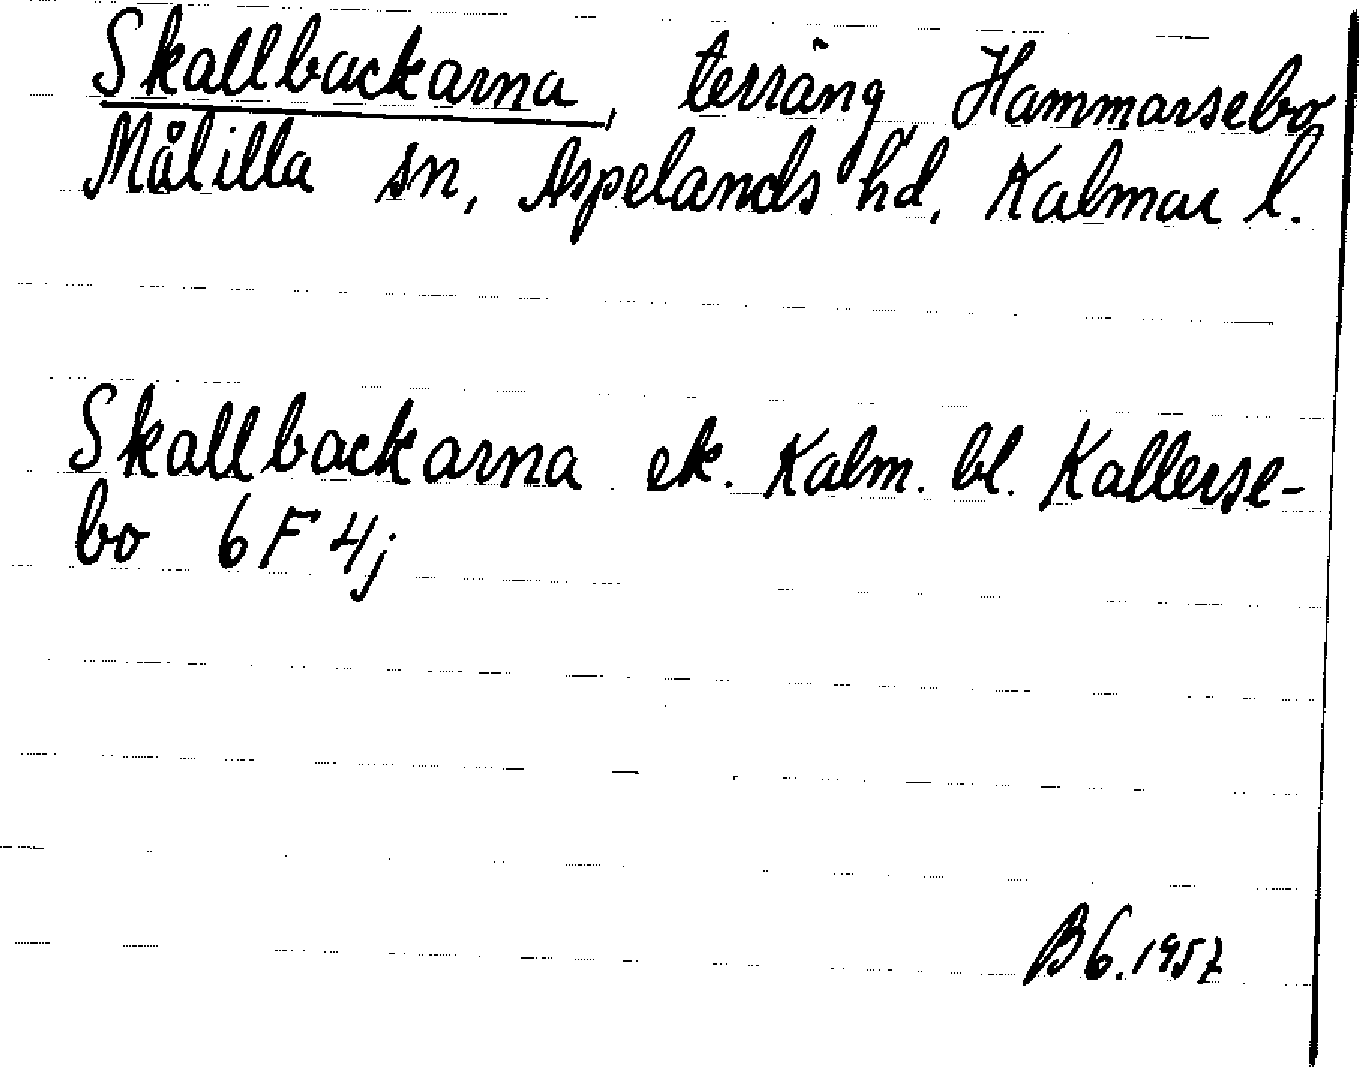 Skallbackarna, terräng Hammarsebo
Målilla sn, Aspelands hd, Kalmar l.
Skallbackarna ek. Kalm. bl. Kallerse-
bo 6 F 4j
B 6.1957